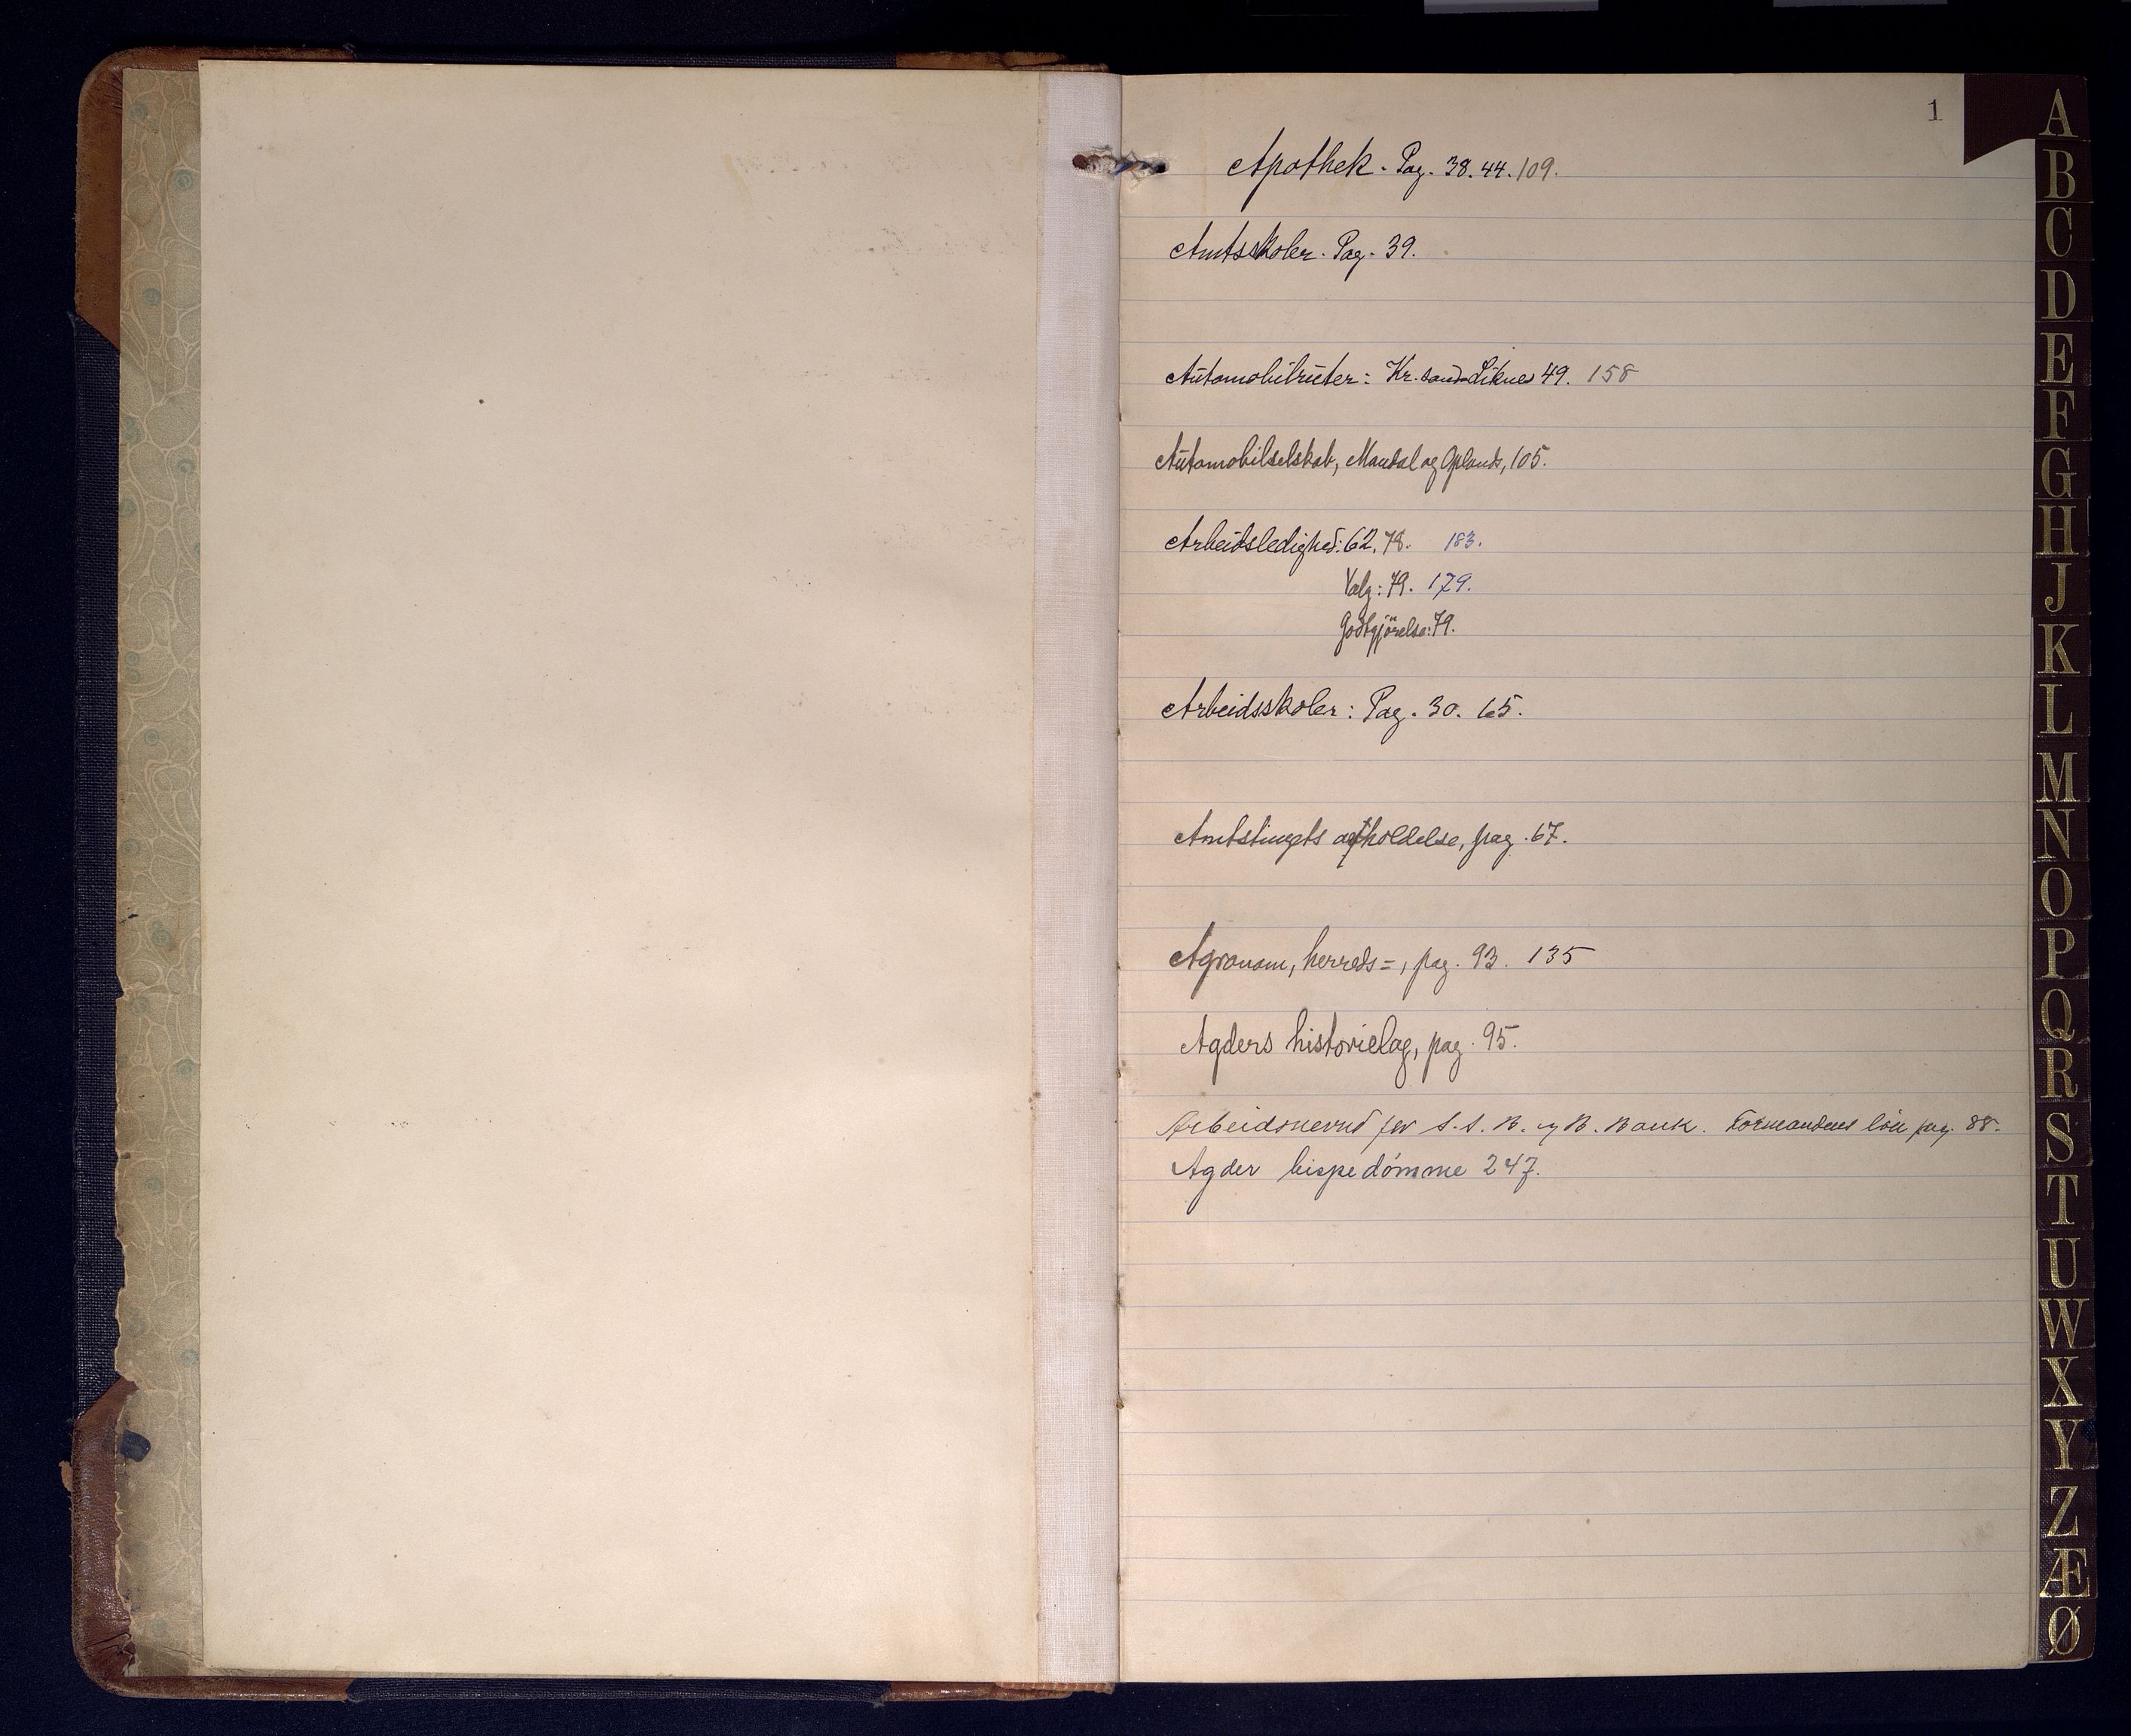 1
Apothek. Pag. 38. 44. 109.
Amtsskoler. Pag. 39.
Automobilruter: Kr.sand-Liknes 49. 158
Automobilselskab, Mandal og Oplands, 105.
Arbeidsledighed: 62. 78. 183.
Valg: 79. 179.
Godtgjörelse: 79.
Arbeidsskoler: Pag. 30. 65.
Amtstingets afholdelse, pag. 67.
Agronom, herreds=, pag. 93. 135
Agders historielag, pag. 95.
Arbeidsnevnd for S. S. B. og B. Bank. Formandens lön pag. 88.
Agder bispedómme 247.
A
B
C
D
E
F
G
H
J
K
L
M
N
O
P
Q
R
S
T
U
W
X
Y
Z
Æ
Ø